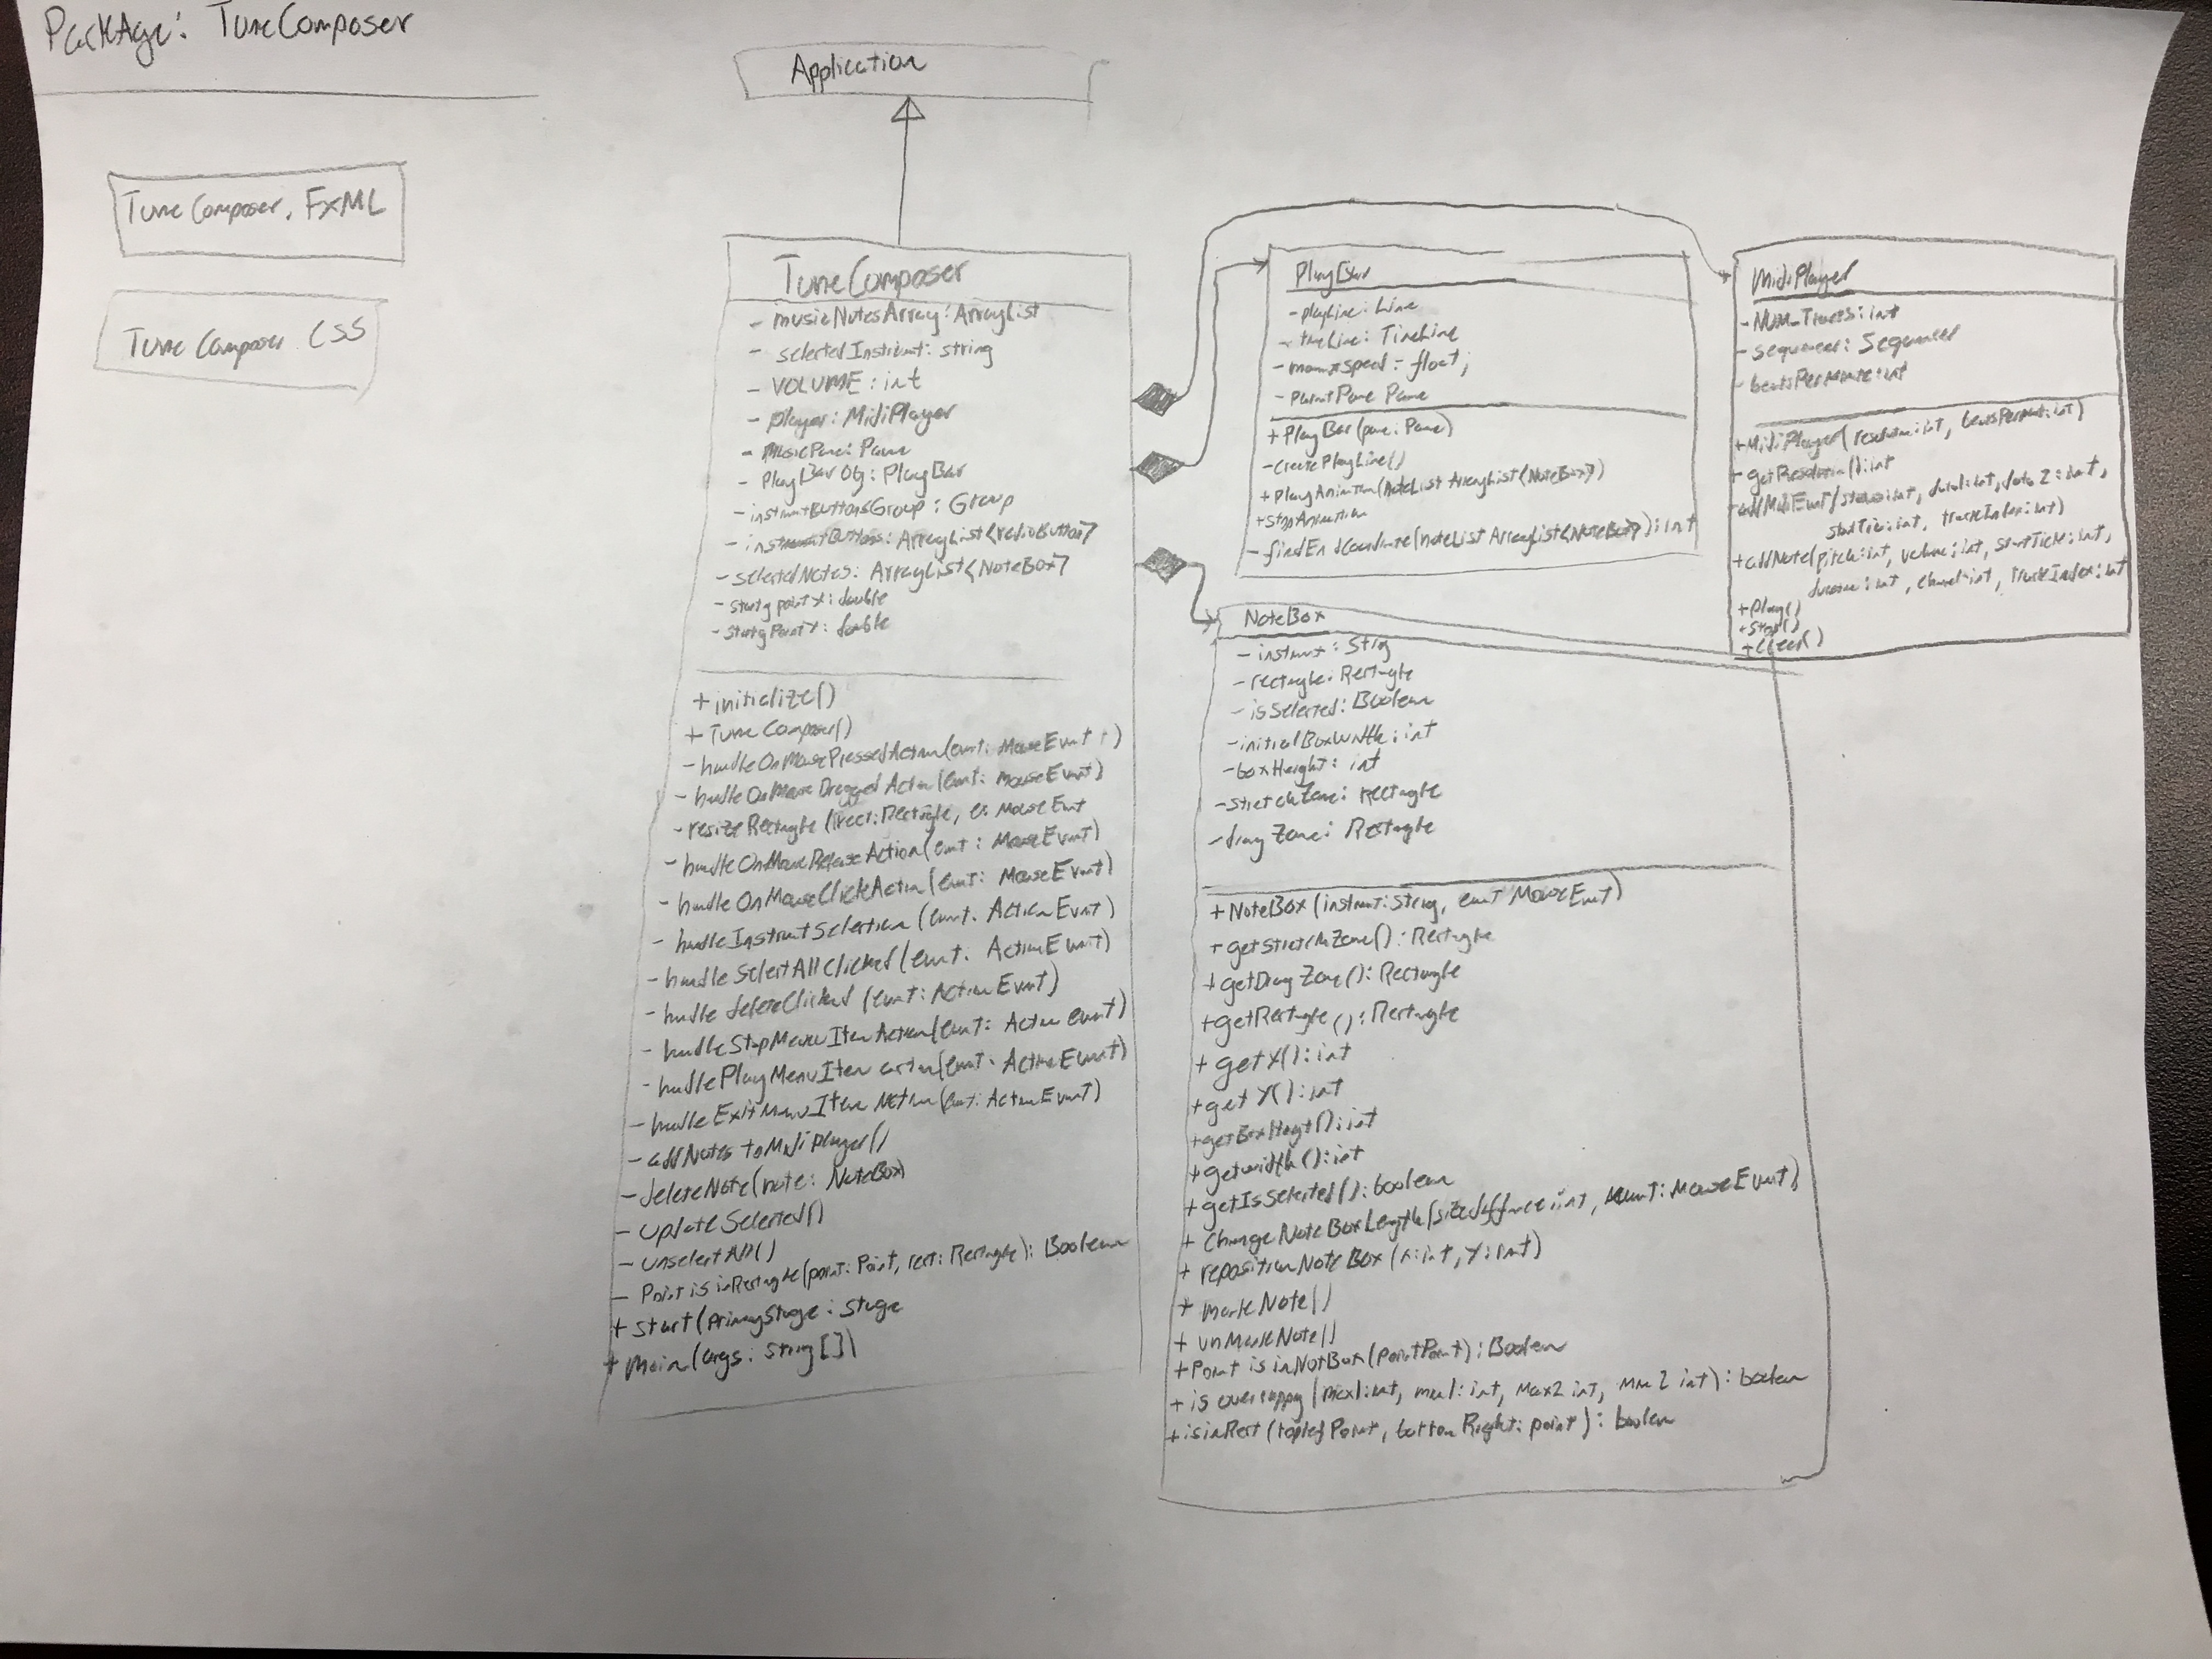 PackAge: TuneComposer
Application
TuneComposer.FXML
TuneComposer CSS
TuneComposer
- musicNotesArray: ArrayList
- selectedInstrument: string
- VOLUME: int
- player: MidiPlayer
- musicPane: Pane
- PlayBarObj: PlayBar
- instrumentButtonsGroup: Group
- instrumentButtons: ArrayList<radioButton>
- selectedNotes: ArrayList<NoteBox>
: double
: double
+ initialize()
+ TuneComposer()
- handleOnMousePressedAction(event: MouseEvent)
- handleOnMouseDraggedAction(event: MouseEvent)
- resizeRectangle(rect: Rectangle, e: MouseEvent
- handleOnMouseReleaseAction(event: MouseEvent)
- handleOnMouseClickAction(event: MouseEvent)
- handleInstrumentSelection(event. ActionEvent)
- handleSelectAllClicked(event. ActionEvent)
- handle deleteClicked (event: ActionEvent)
- handleStopMenuItemAction(event: Action event)
- handlePlayMenuItem action(event: ActionEvent)
- handleExitMenuItem Action(event: ActionEvent)
- addNotes toMidiplayer()
- deleteNote(note: NoteBox)
- updateSelected()
- unselectAll()
- Point is inRectangle(point: Point, rect: Rectangle): Boolean
+ start(primaryStage: Stage
+ main(args: String[])
PlayBar
- playLine: Line
- timeLine: TimeLine
: float;
- parentPane Pane
+ PlayBar(pane: Pane)
- createPlayLine()
+ playAnimation(NoteList ArrayList<NoteBox>)
+ stopAnimation
- findEndCoordinate(noteList ArrayList<NoteBox>): int
MidiPlayer
- NUM_Tracks: int
- sequencer: Sequencer
- beatsPerMinute: int
+ MidiPlayer(resolution: int, beatsPerMinut: int)
+ getResolution(): int
+ addMidiEvent(status: int, data1: int, data2: int,
startTick: int, trackIndex: int)
+ addNote(pitch: int, volume: int, startTick: int,
duration: int, channel: int, trackIndex: int
+ Play()
+ Stop()
+ clear()
NoteBox
- instrument: String
- rectangle: Rectangle
- isSelected: Boolean
- initialBoxWidth: int
- boxHeight: int
- stretchZone: Rectangle
- dragZone: Rectangle
+ NoteBox(instrument: String, event MouseEvent)
+ getStretchZone(): Rectangle
+ getDragZone(): Rectangle
+ getRectangle(): Rectangle
+ getX(): int
+ getY(): int
+ getBoxHeight(): int
+ getwidth(): int
+ getIsSelected(): boolean
+ ChangeNoteBoxLength(sizedifference: int, event: MouseEvent)
+ repositionNoteBox(x: int, Y: int)
+ markNote()
+ unMarkNote()
+ Point is inNotBox(pointPoint): Boolean
+ is (max1: int, min1: int, Max2 int, Min 2 int): boolean
+ isinRect(topleft Point, bottomRight: point): boolean